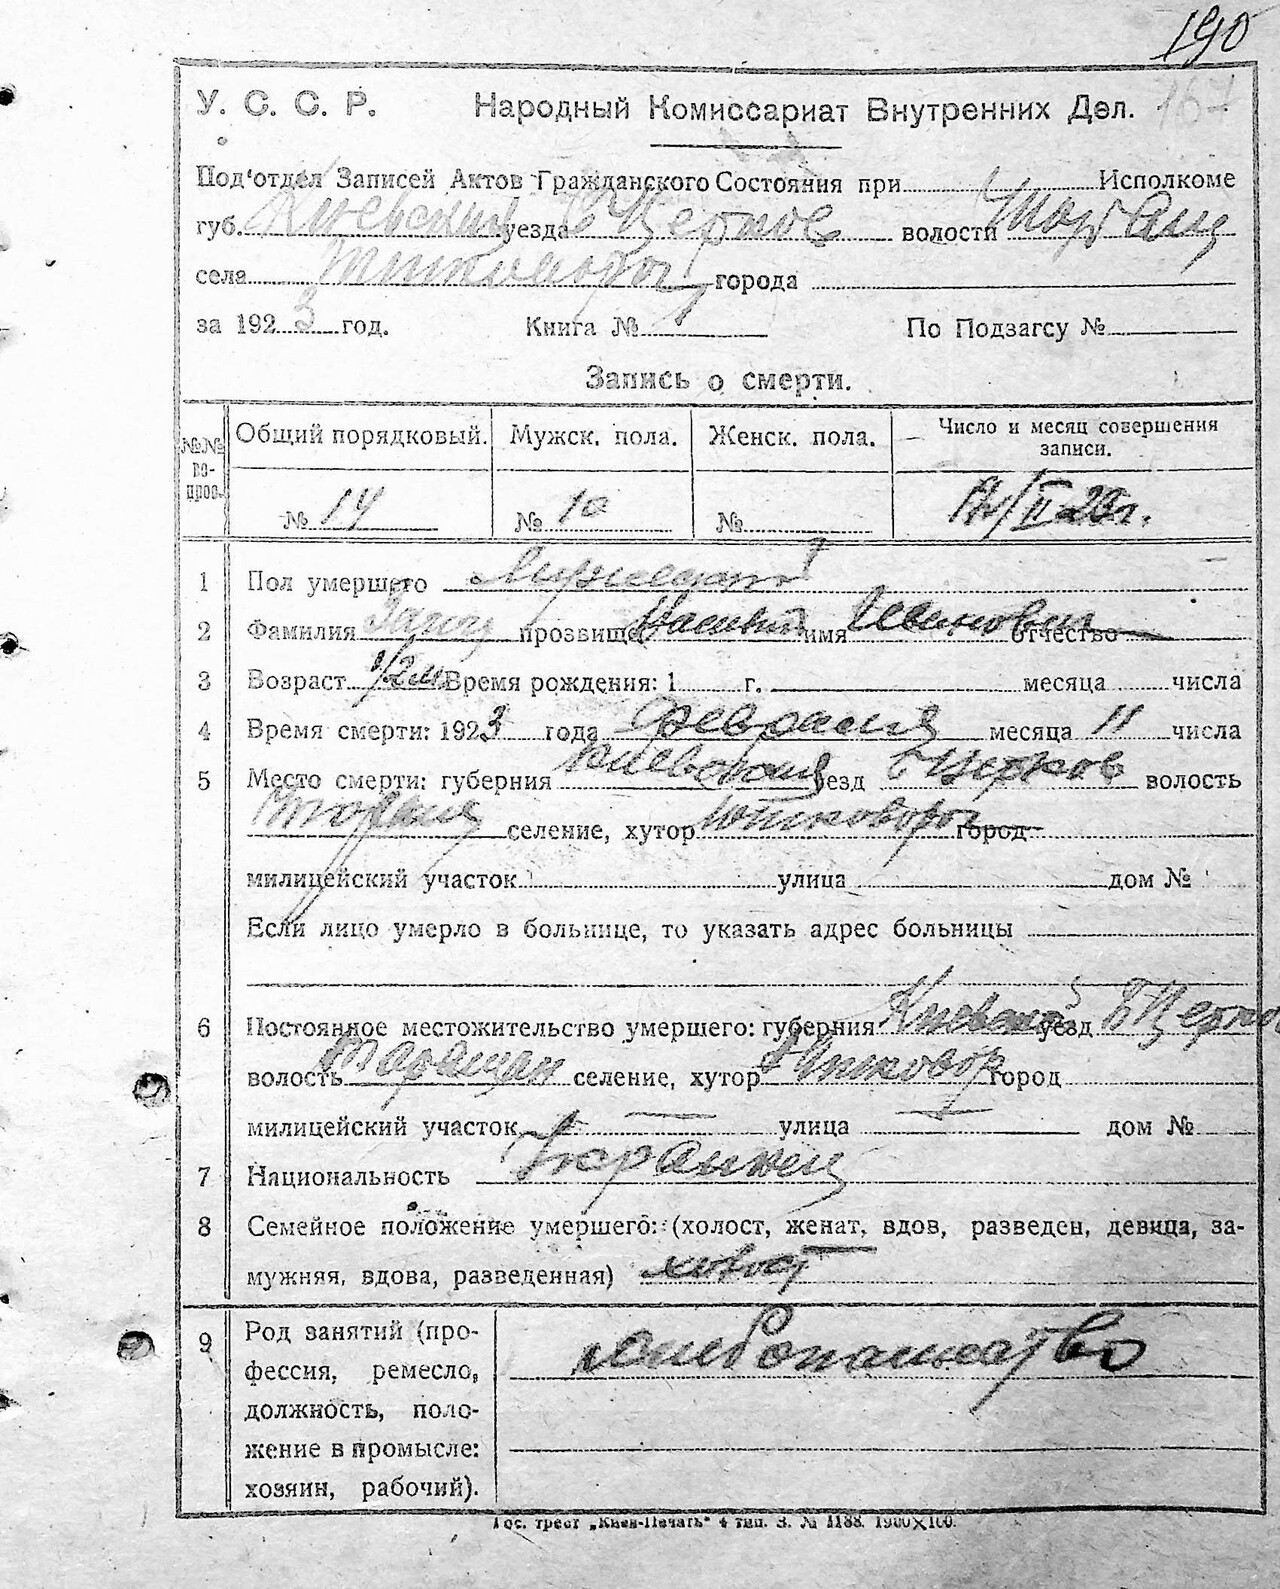 190
167
У. С. С. Р. Народный Комиссариат Внутренних Дел.
Под'отдел Записей Актов Гражданского Состояния при Исполкоме
губ. Киевския уезда Б Церков волости Таращ
села города
за 1923 год. Книга № По Подзагсу №
Запись о смерти.
№№ вопров. Общий порядковый. Мужск. пола. Женск. пола. Число и месяц совершения записи.
№ 14 № 10 № /II-23г.
1 Пол умершего Мужеский
2 Фамилия прозвище имя Иванович отчество
3 Возраст 1/2 м Время рождения: 1 г. месяца числа
4 Время смерти: 1923 года февраля месяца 11 числа
5 Место смерти: губерния Киевская уезд Б Церков волость
селение, хутор город
милицейский участок улица дом №
Если лицо умерло в больнице, то указать адрес больницы
6 Постоянное местожительство умершего: губерния уезд Б Церков
волость Таращан селение, хутор город
милицейский участок улица дом №
7 Национальность Украинец
8 Семейное положение умершего: (холост, женат, вдов, разведен, девица, за-
мужняя, вдова, разведенная) холост
9 Род занятий (про-
фессия, ремесло,
должность, поло-
жение в промысле:
хозяин, рабочий).
хлебопашество
Гос. трест „Киев-Печать" 4 тип. З. № 1188. 1900×100.